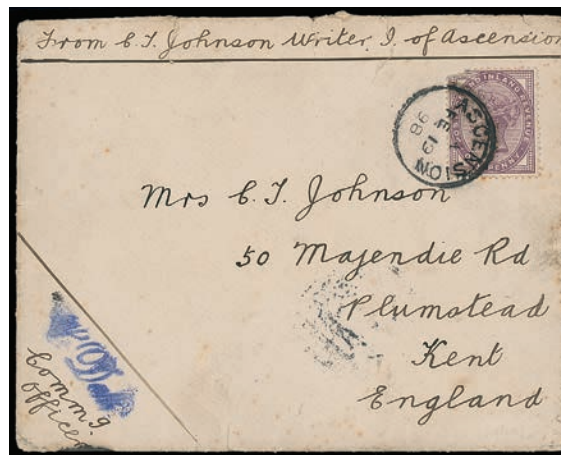 From C. T. Johnson Writer, I. of Ascension
ASCENSION
FE 19
98
INLAND REVENUE
PENNY
Mrs C. T. Johnson
50 Majendie Rd
Plumstead
Kent
England
Commg.
Officer